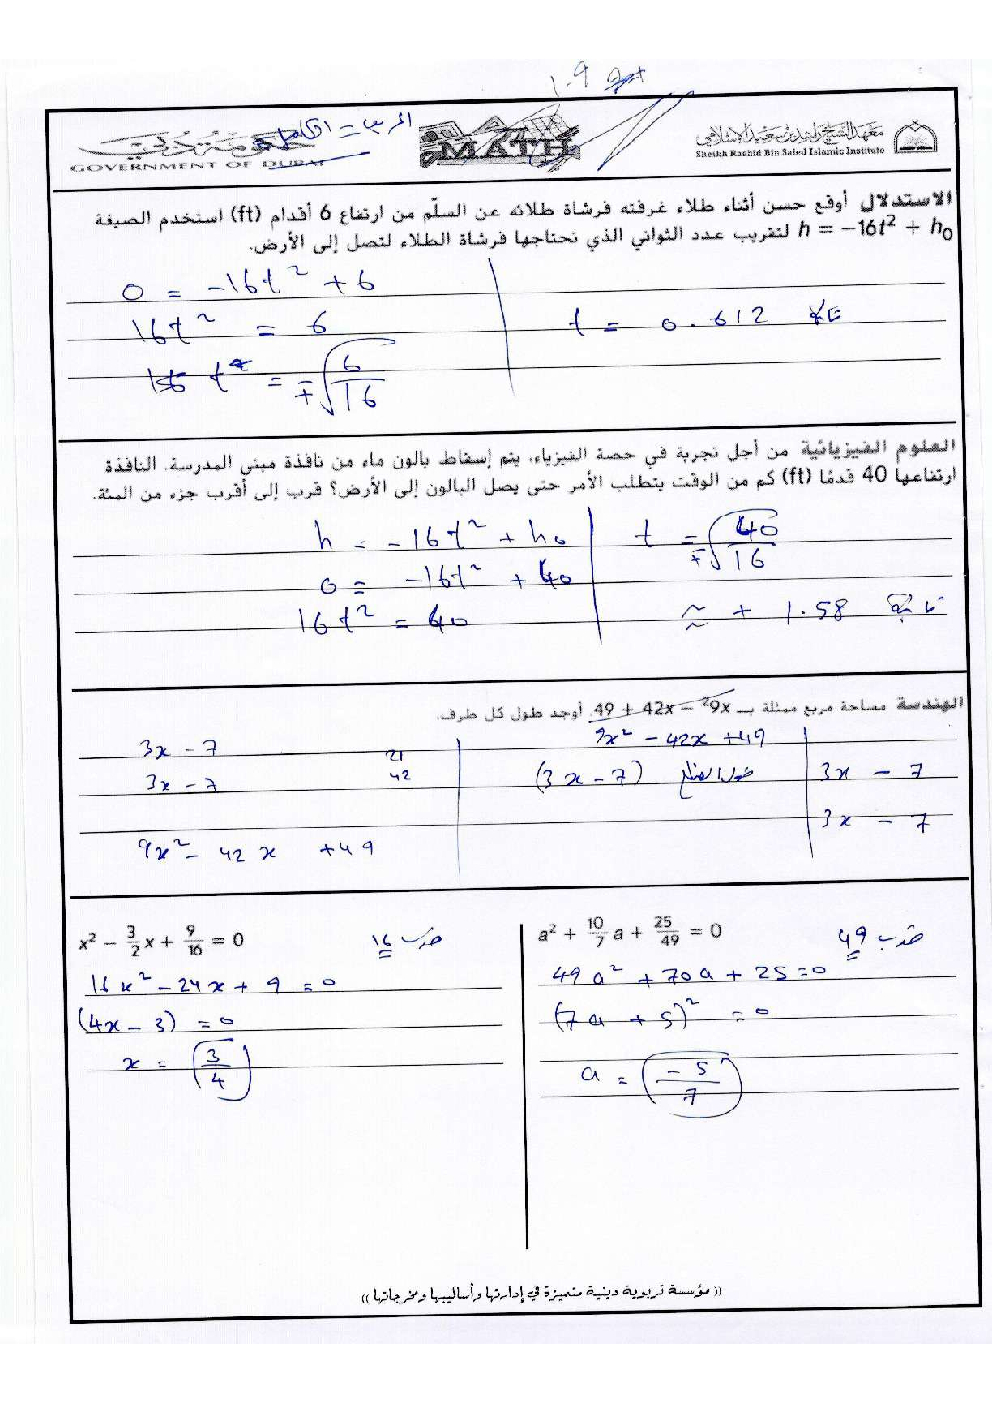 1-9
حكومة دبي
GOVERNMENT OF DUBAI
MATH
معهد الشيخ راشد بن سعيد الإسلامي
Sheikh Rashid Bin Saied Islamic Institute
الاستدلال أوقع حسن أثناء طلاء غرفته فرشاة طلائه عن السلّم من ارتفاع 6 أقدام (ft) استخدم الصيغة
h = −16t² + h₀ لتقريب عدد الثواني الذي تحتاجها فرشاة الطلاء لتصل إلى الأرض.
0 = -16t² + 6
16t² = 6
t = ∓√(6/16)
t = 0.612
العلوم الفيزيائية من أجل تجربة في حصة الفيزياء، يتم إسقاط بالون ماء من نافذة مبنى المدرسة. النافذة
ارتفاعها 40 قدمًا (ft) كم من الوقت يتطلب الأمر حتى يصل البالون إلى الأرض؟ قرب إلى أقرب جزء من المئة.
h = -16t² + h₀
0 = -16t² + 40
16t² = 40
t = ∓√(40/16)
≈ + 1.58 ثانية
الهندسة مساحة مربع ممثلة بـ 9x² − 42x + 49. أوجد طول كل طرف.
9x² - 42x + 49
(3x - 7) طول الضلع
3x - 7
3x - 7
3x - 7
3x - 7
21
42
9x² - 42x + 49
x² − 3/2 x + 9/16 = 0
ضرب 16
16x² - 24x + 9 = 0
(4x - 3) = 0
x = 3/4
a² + 10/7 a + 25/49 = 0
ضرب 49
49a² + 70a + 25 = 0
(7a + 5)² = 0
a = -5/7
(( مؤسسة تربوية دينية متميزة في إدارتها وأساليبها ومخرجاتها ))